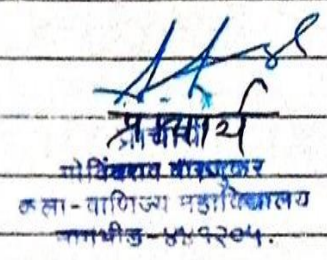 प्राचार्य
गोविंदराव वारजुकर
कला - वाणिज्य महाविद्यालय
नागभीड - ४४१२०५.